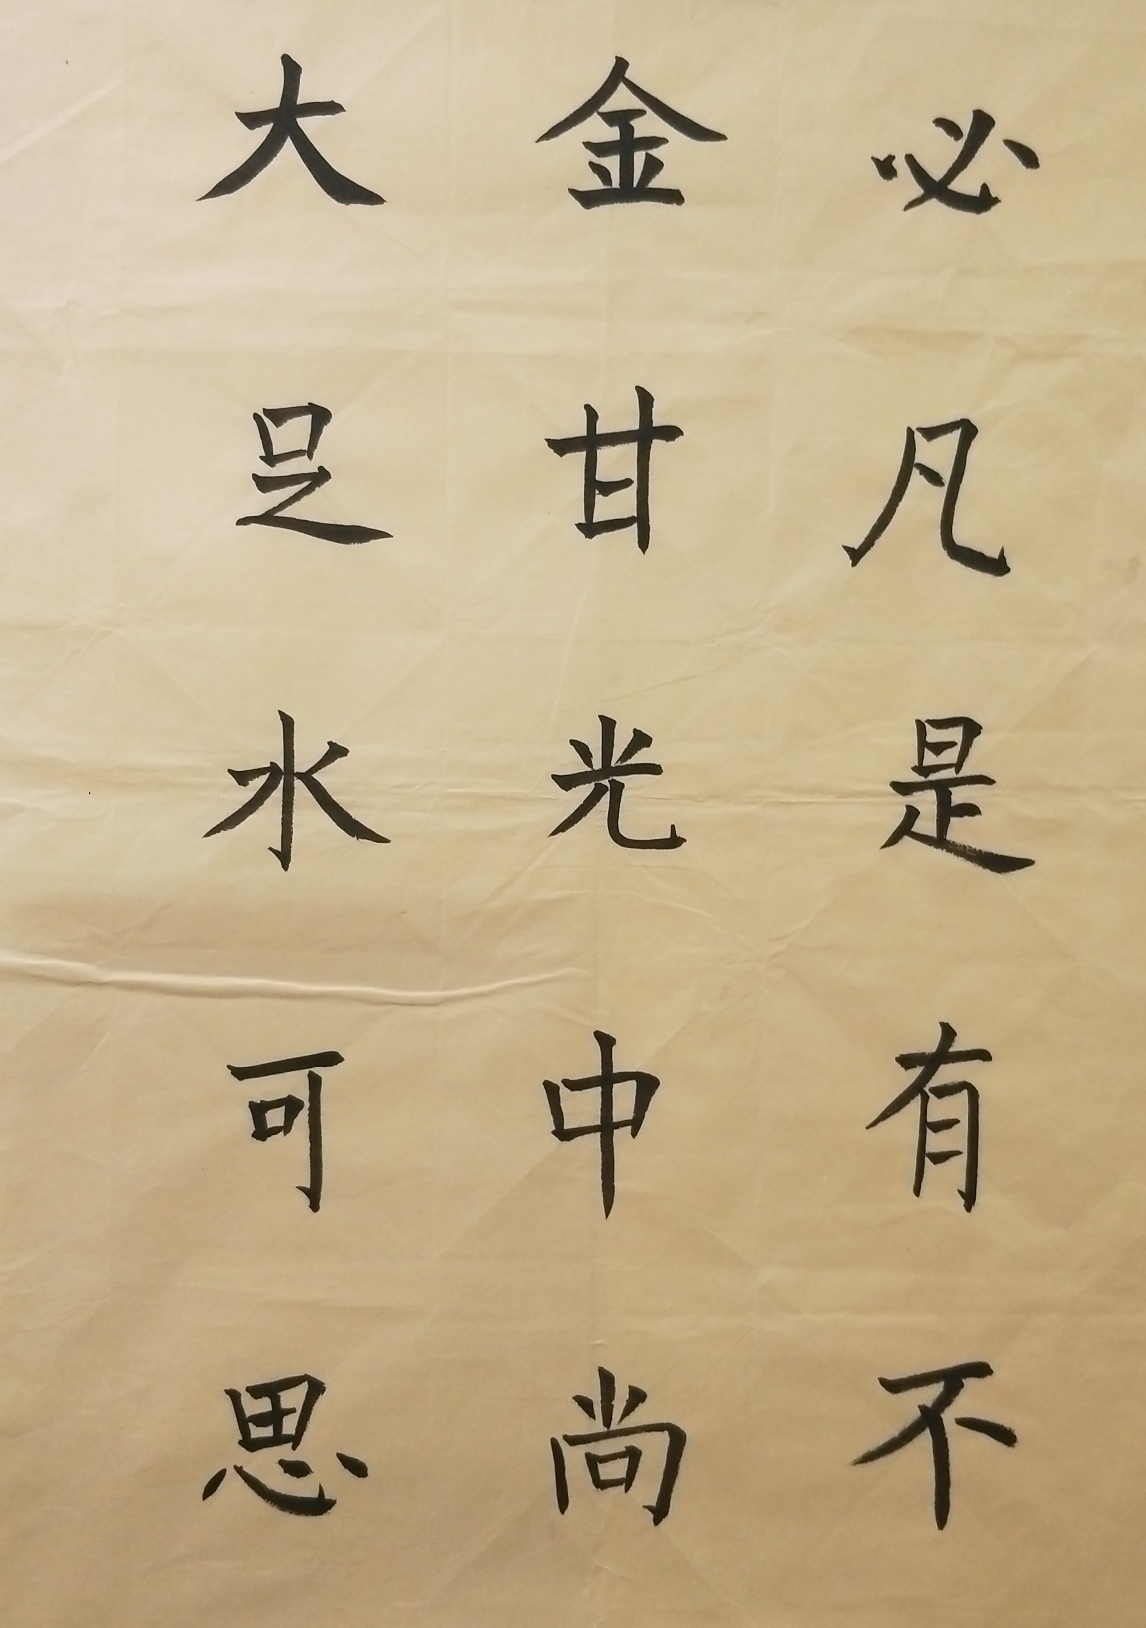 必凡是有不
金甘光中尚
大足水可思